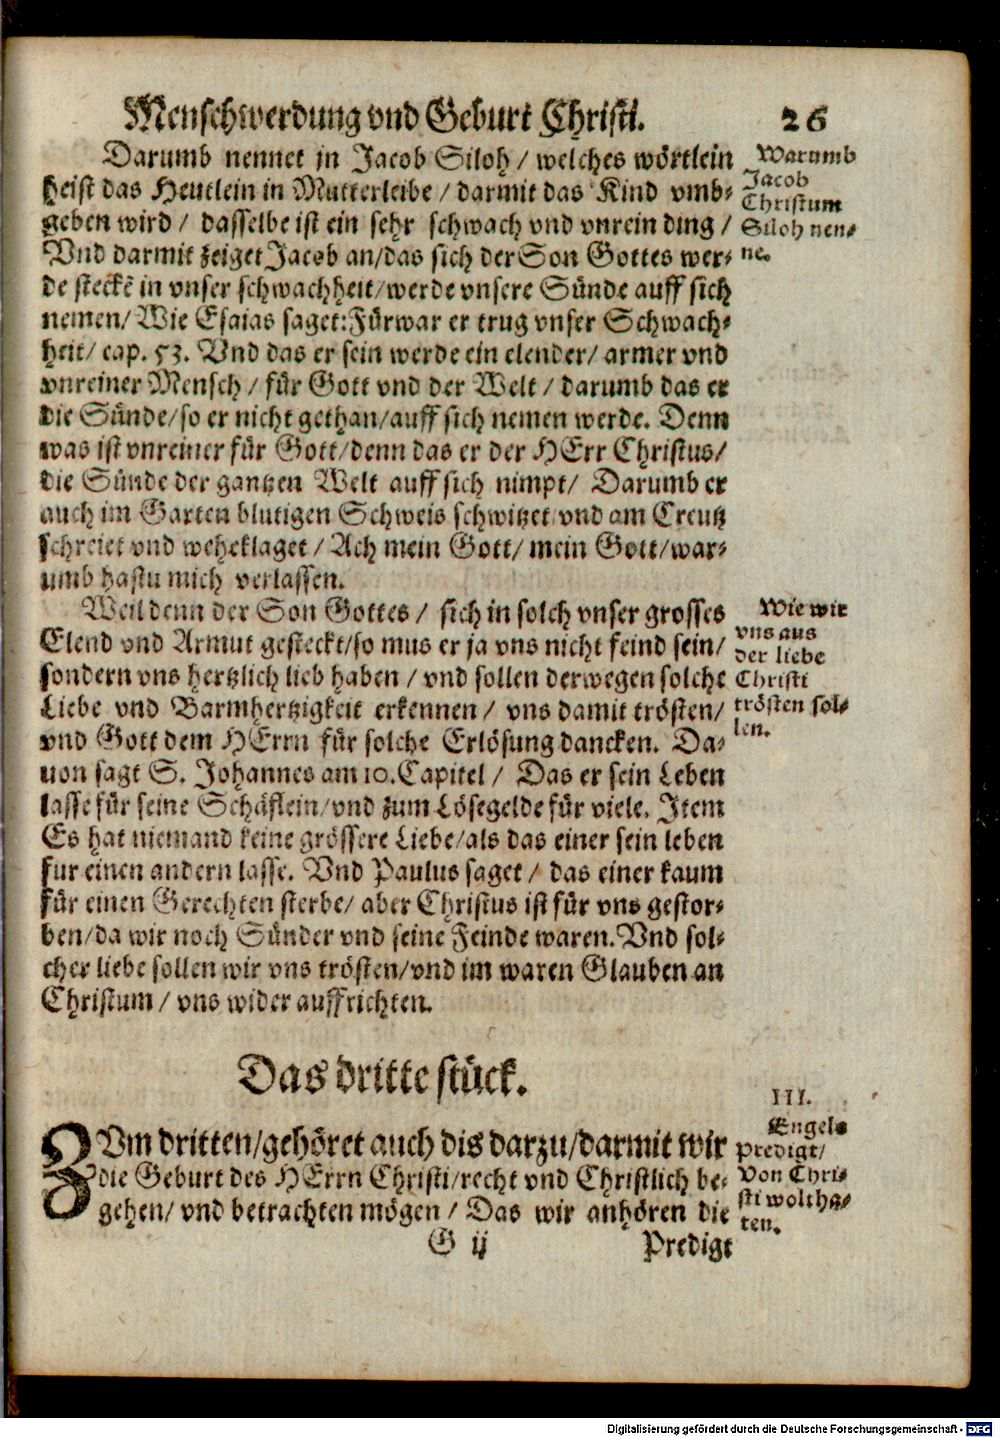 Menschwerdung vnd Geburt Christi. 26
Darumb nennet jn Jacob Siloh / welches wörtlein
heist das Heutlein in Mutterleibe / darmit das Kind vmb-
geben wird / dasselbe ist ein sehr schwach vnd vnrein ding /
Vnd darmit zeiget Jacob an/das sich der Son Gottes wer-
de steckē in vnser schwachheit/werde vnsere Sünde auff sich
nemen/ Wie Esaias saget:Fürwar er trug vnser Schwach-
heit/ cap. 53. Vnd das er sein werde ein elender/ armer vnd
vnreiner Mensch / für Gott vnd der Welt / darumb das er
die Sünde/so er nicht gethan/auff sich nemen werde. Denn
was ist vnreiner für Gott/denn das er der HErr Christus/
die Sünde der gantzen Welt auff sich nimpt/ Darumb er
auch im Garten blutigen Schweis schwitzet vnd am Creutz
schreiet vnd weheklaget / Ach mein Gott/ mein Gott/war-
umb hastu mich verlassen.
Warumb
Jacob
Christum
Siloh nen-
ne.
Weil denn der Son Gottes / sich in solch vnser grosses
Elend vnd Armut gesteckt/so mus er ja vns nicht feind sein/
sondern vns hertzlich lieb haben / vnd sollen derwegen solche
Liebe vnd Barmhertzigkeit erkennen / vns damit trösten/
vnd Gott dem HErrn für solche Erlösung dancken. Da-
uon sagt S. Johannes am 10.Capitel / Das er sein Leben
lasse für seine Schäflein/vnd zum Lösegelde für viele. Item
Es hat niemand keine grössere Liebe/als das einer sein leben
fur einen andern lasse. Vnd Paulus saget / das einer kaum
für einen Gerechten sterbe/ aber Christus ist für vns gestor-
ben/da wir noch Sünder vnd seine Feinde waren.Vnd sol-
cher liebe sollen wir vns trösten/vnd im waren Glauben an
Christum / vns wider auffrichten.
Wie wir
vns aus
der liebe
Christi
trösten sol-
len.
Das dritte stück.
ZVm dritten/gehöret auch dis darzu/darmit wir
die Geburt des HErrn Christi/recht vnd Christlich be-
gehen/ vnd betrachten mögen / Das wir anhören die
III.
Engels
Predigt/
Von Chri-
sti woltha-
ten.
G ij Predigt
Digitalisierung gefördert durch die Deutsche Forschungsgemeinschaft - DFG